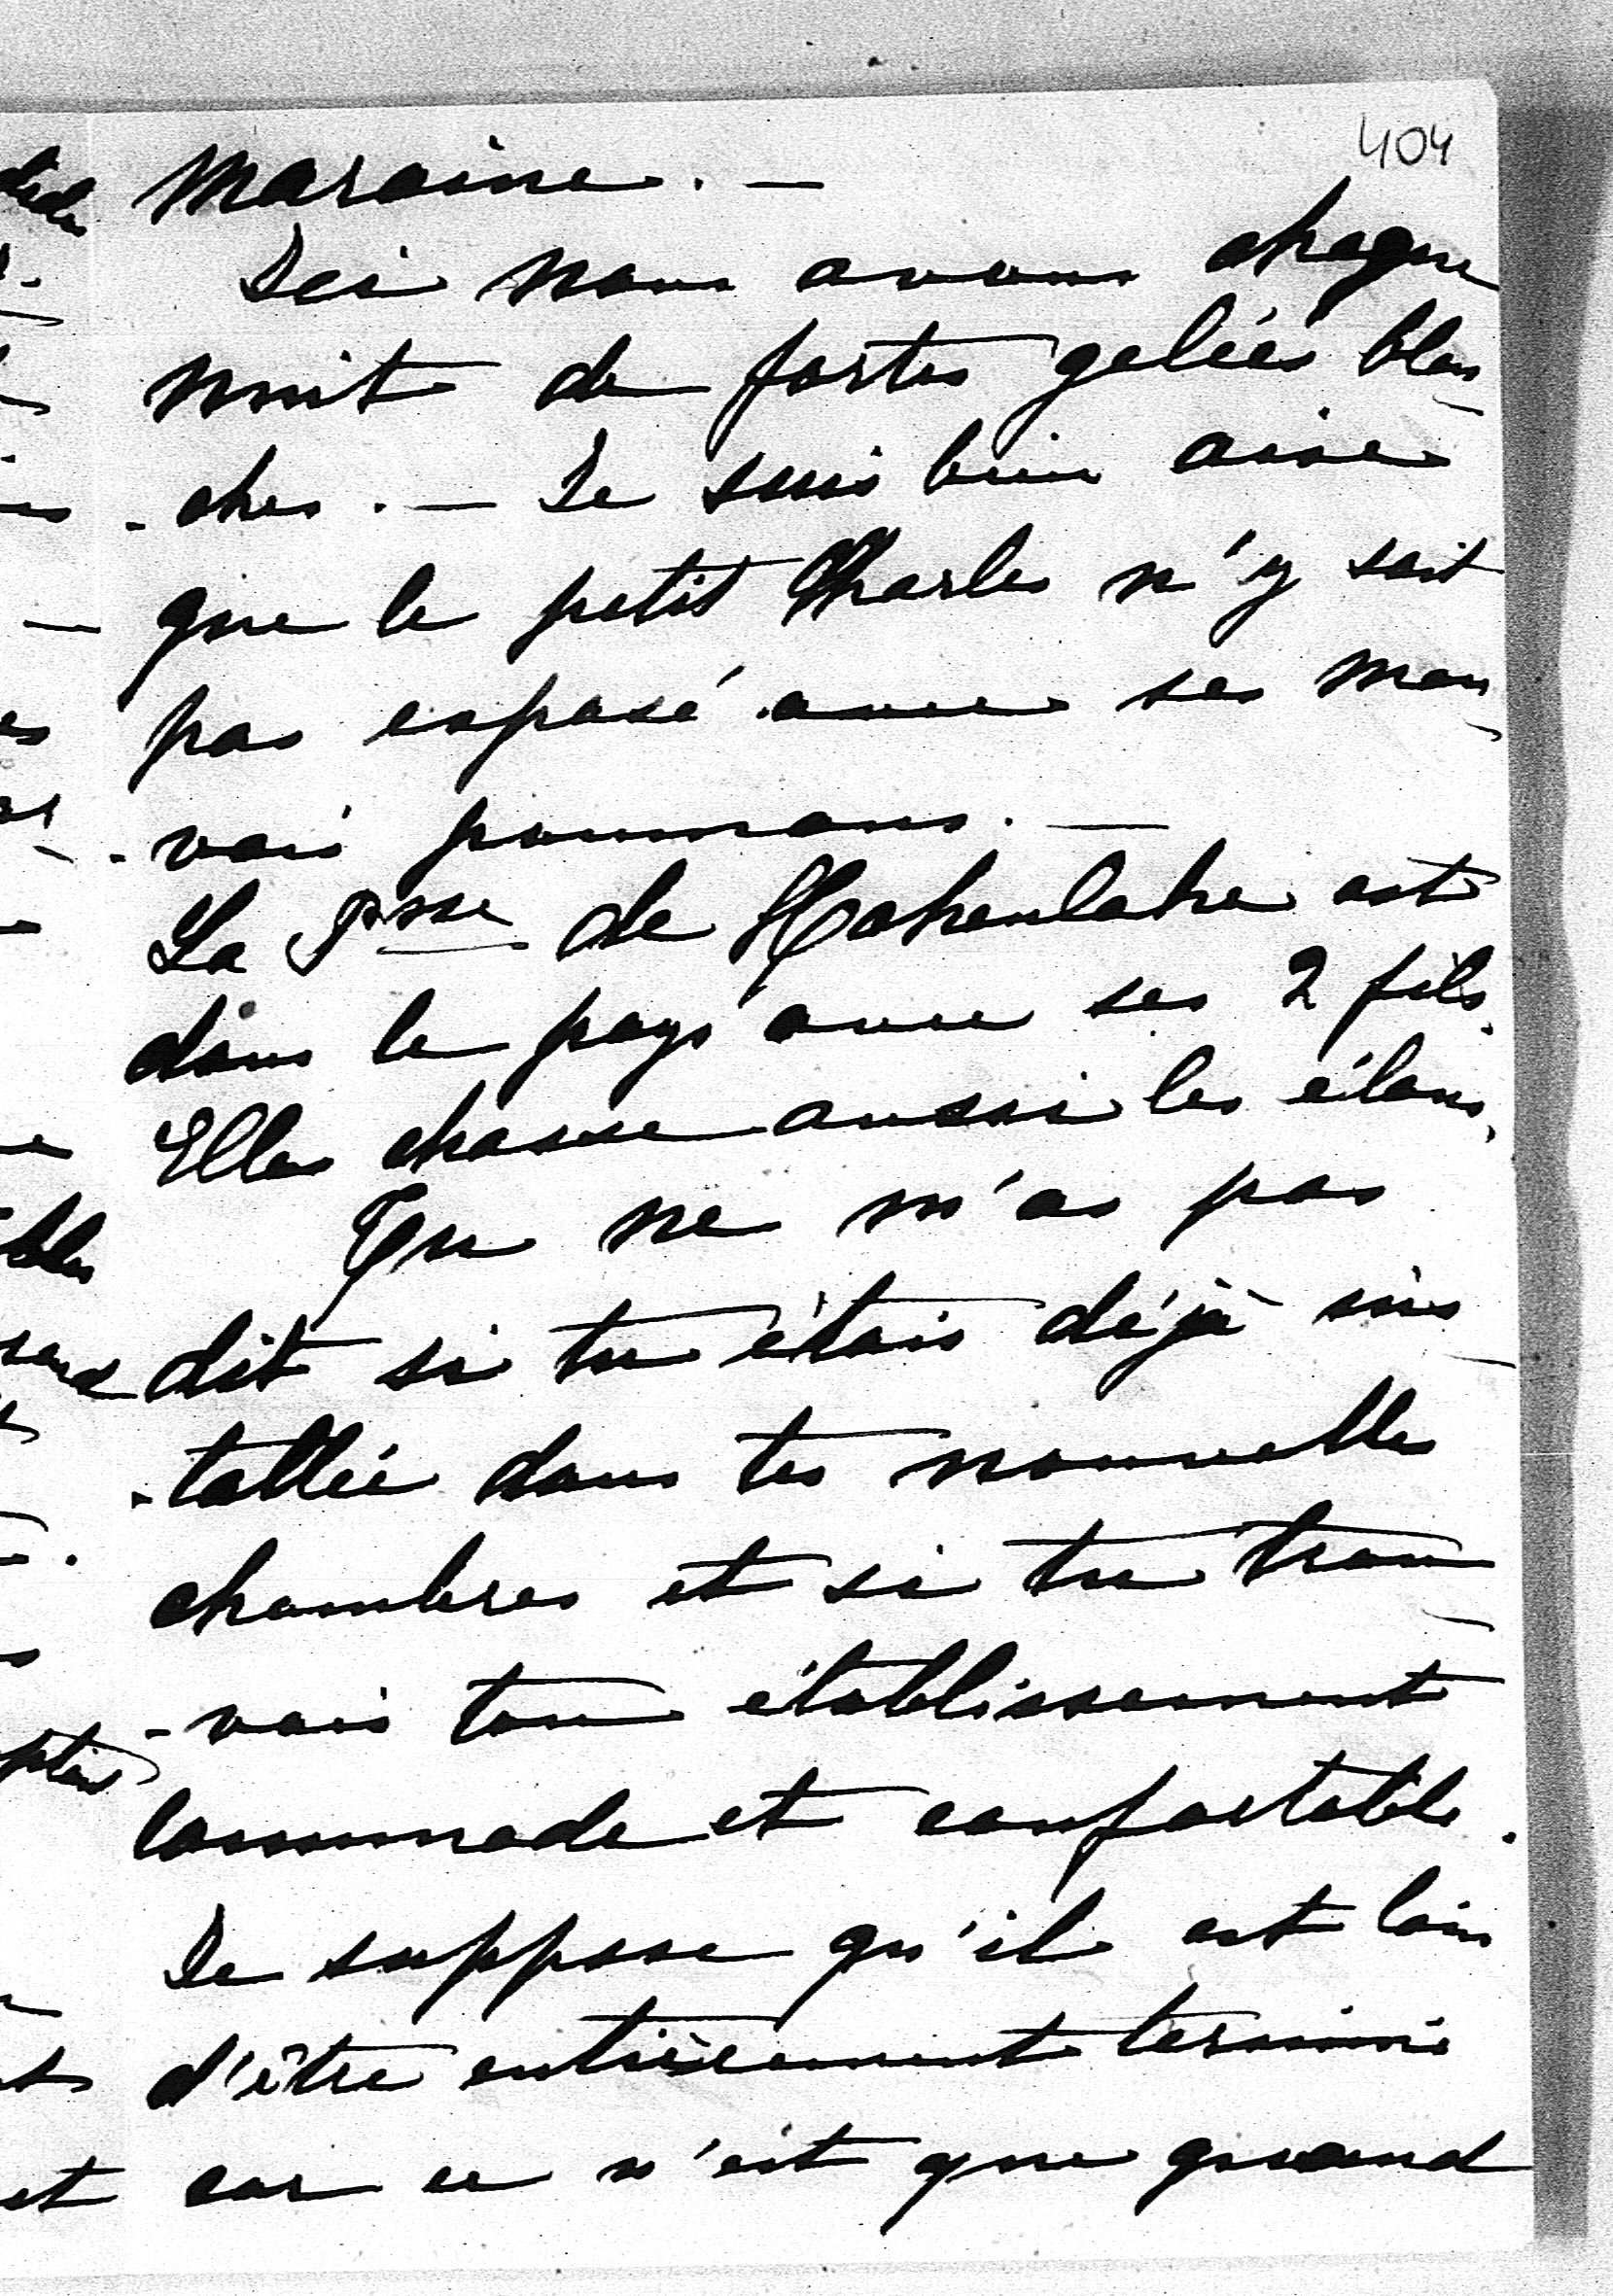 404
Maraine. —
Ici nous avons chaque
nuit de fortes gelées blan
-ches. — Je suis bien aise
que le petit Charles n'y soit
pas exposé avec ses mau
-vais poumons. —
La Psse de Hohenlohe est
dans le pays avec ses 2 fils.
Elle chasse aussi les élans.
Tu ne m'as pas
dit si tu étais déjà ins
-tallée dans tes nouvelles
chambres et si tu trou
-vais ton établissement
commode et confortable.
Je suppose qu'il est loin
d'être entièrement terminé
car ce n'est que quand